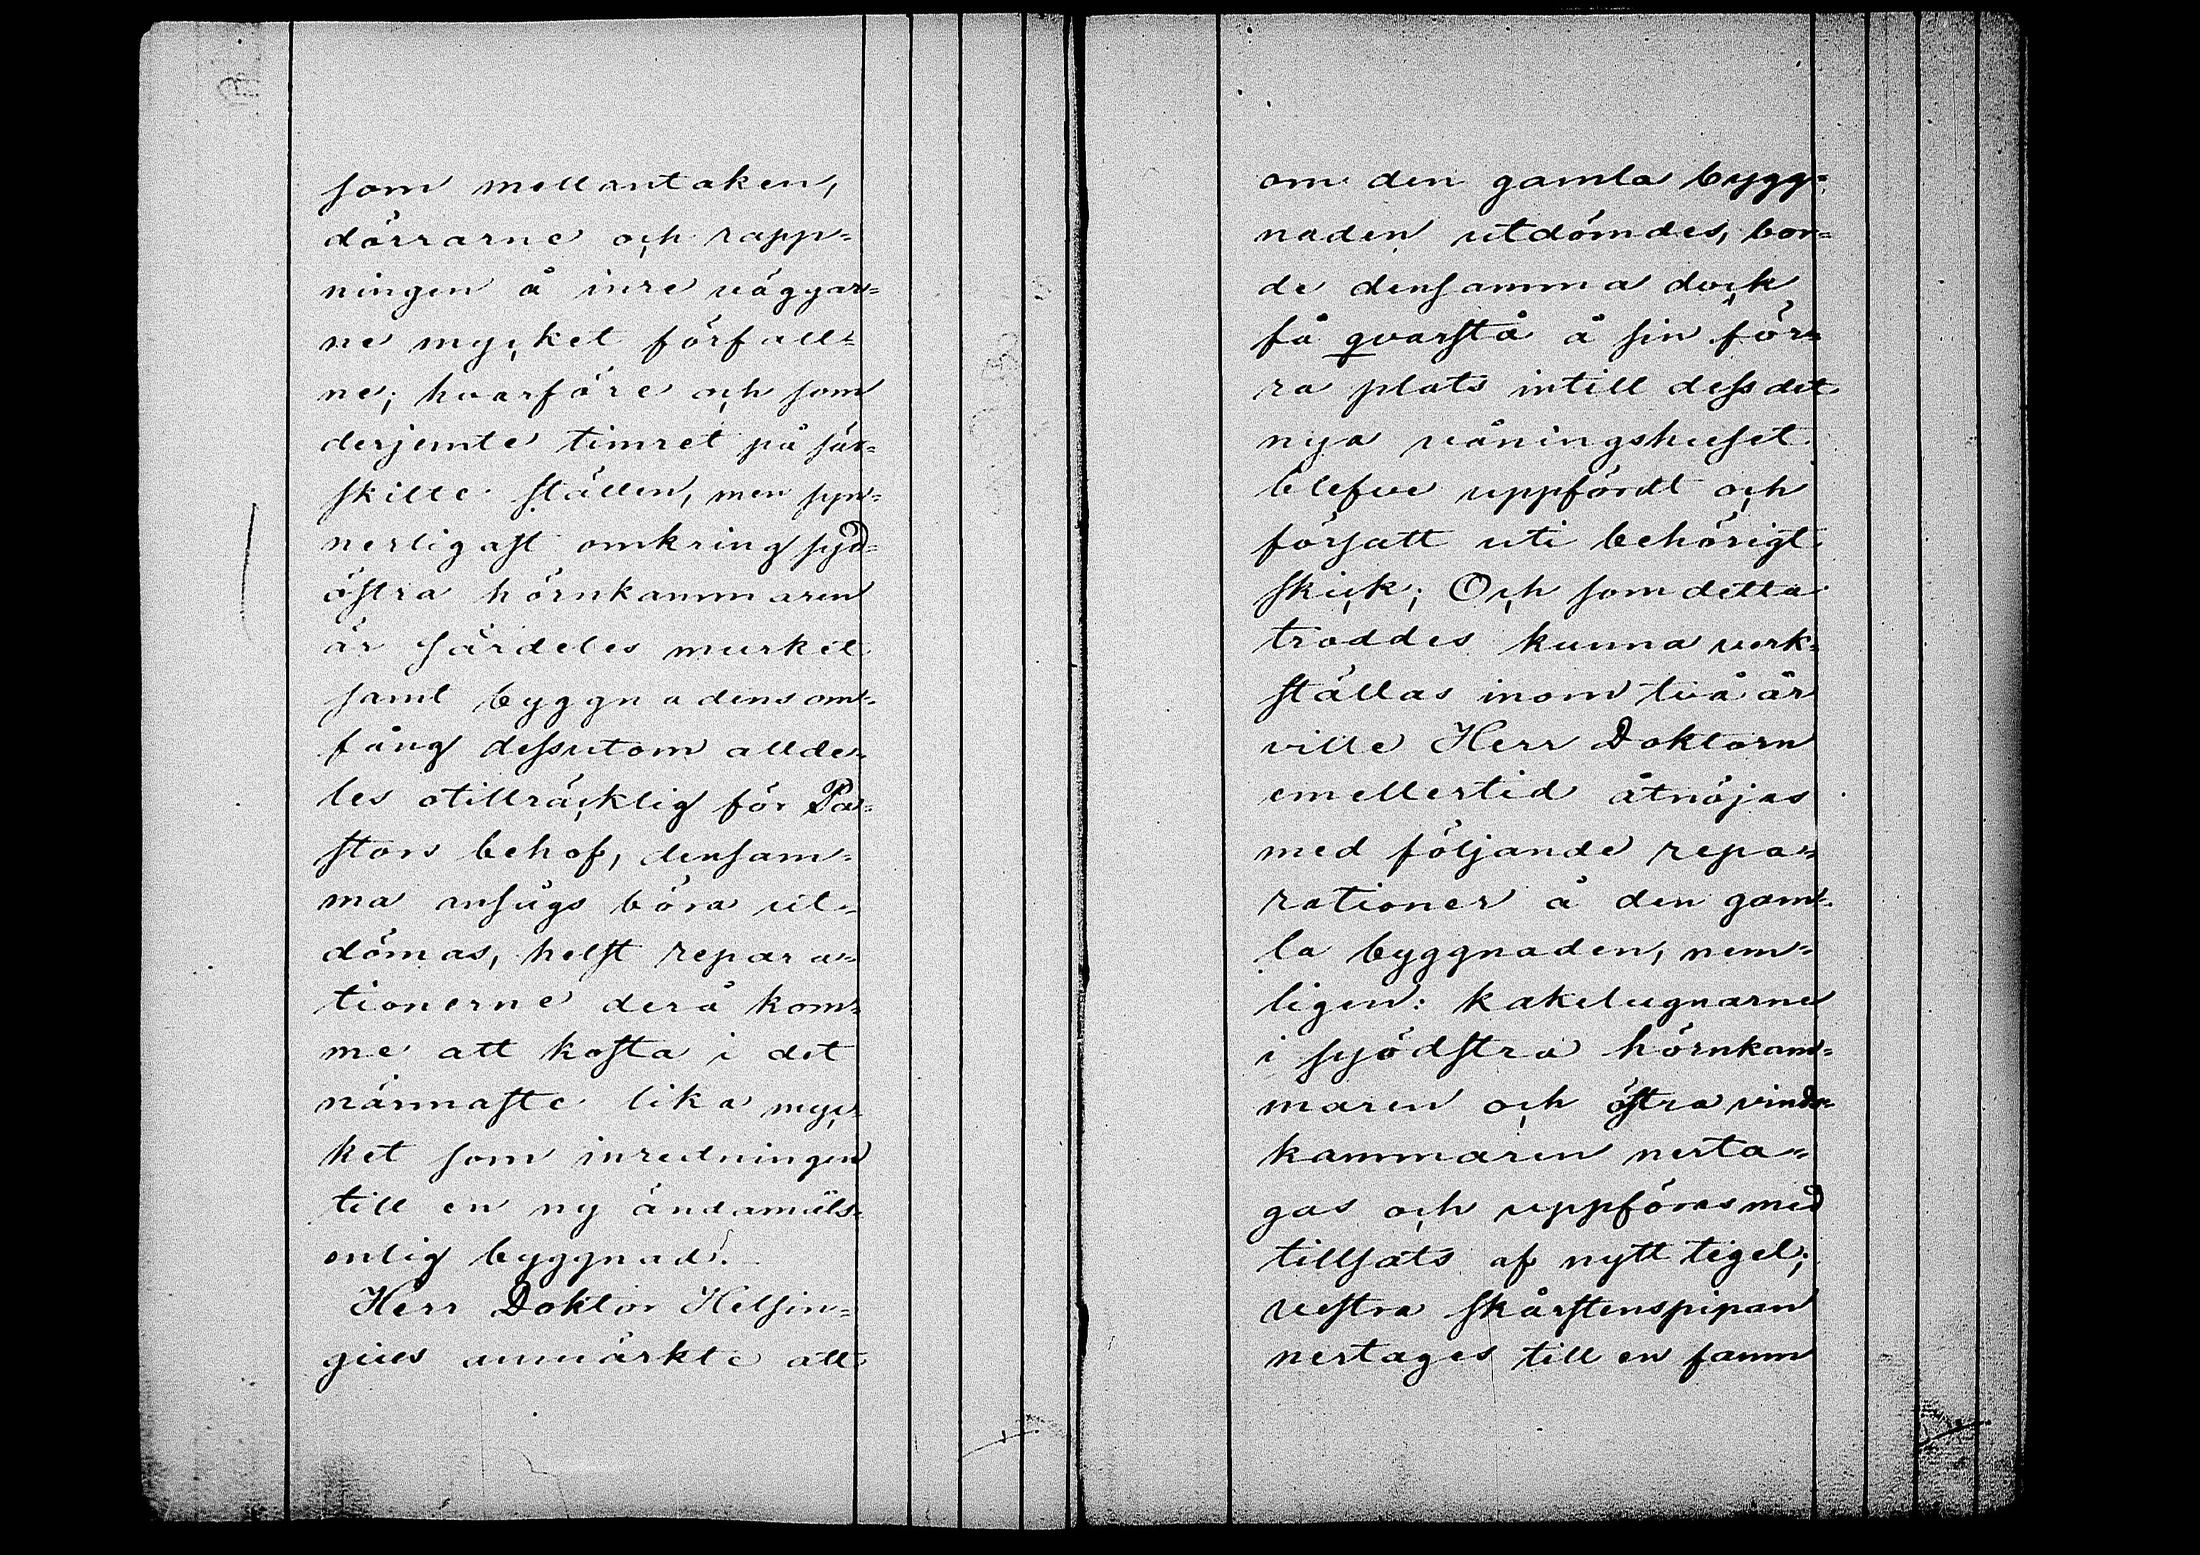 som mellantaken,
dörrarne och rapp=
ningen å inre väggar=
ne mycket förfall=
ne; hvarföre och som
derjemte timret på sär=
skilte ställen, men syn=
nerligast omkring syd=
östra hörnkammaren
är särdeles murket
samt byggnadens om=
fång dessutom allde=
les otillräcklig för Pa=
stors behof, densam=
ma ansågs böra ut=
dömas, helst repara=
tionerne derå kom=
me att kosta i det
närmaste lika myc=
ket som inredningen
till en ny ändamåls=
enlig byggnad.
Herr Doktor Helsin=
gius anmärkte att
om den gamla bygg=
naden utdömdes, bor=
de densamma dock
få qvarstå å sin för=
ra plats intill dess det
nya våningshuset
blefve uppfördt och
försatt uti behörigt
skick; Och som detta
troddes kunna verk=
ställas inom två år
ville Herr Doktorn
emellertid åtnöjas
med följande repa=
rationer å den gam=
la byggnaden, nem=
ligen: kakelugnarne
i syödstra hörnkam=
maren och östra vinds=
kammaren nerta=
gas och uppföras med
tillsats af nytt tegel;
vestra skårstenspipan
nertages till en famn